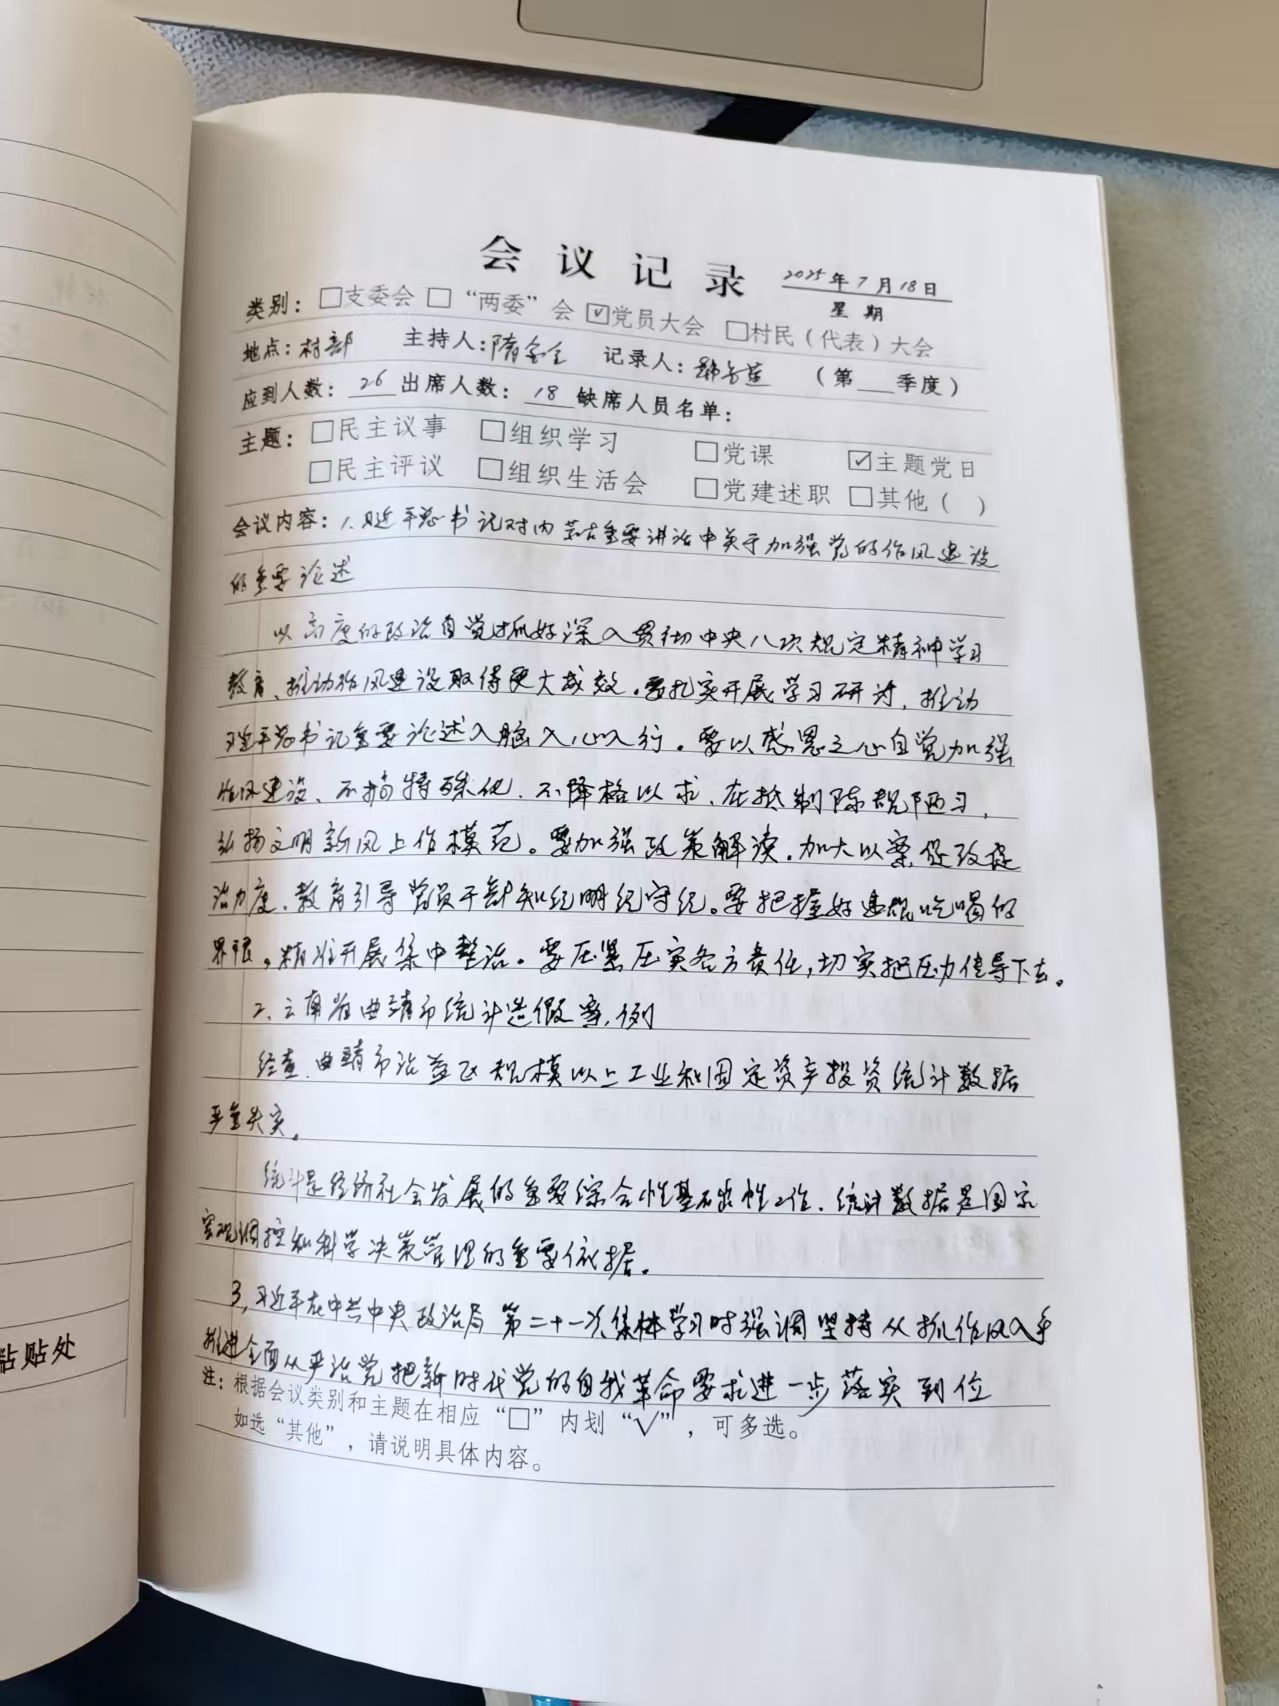 会议记录 2025年7月18日
星期
类别：□支委会 □“两委”会 ☑党员大会 □村民（代表）大会
地点：村部 主持人：隋 记录人： （第___季度）
应到人数：26 出席人数：18 缺席人员名单：
主题：□民主议事 □组织学习 □党课 ☑主题党日
□民主评议 □组织生活会 □党建述职 □其他（ ）
会议内容：1.习近平总书记对内蒙古重要讲话中关于加强党的作风建设
的重要论述
以高度的政治自觉抓好深入贯彻中央八次规定精神学习
教育、推动作风建设取得更大成效。要扎实开展学习研讨，推动
习近平总书记重要论述入脑入心入行。要以感恩之心自觉加强
作风建设、不搞特殊化、不降格以求、在抵制陈规陋习，
弘扬文明新风上作模范。要加强政策解读，加大以案促改促
治力度、教育引导党员干部知纪明纪守纪。要把握好违规吃喝的
界限，精准开展集中整治。要压紧压实各方责任，切实把压力传导下去。
2、云南省曲靖市统计造假案例
经查，曲靖市沾益区规模以上工业和固定资产投资统计数据
严重失实。
统计是经济社会发展的重要综合性基础性工作，统计数据是国家
宏观调控和科学决策管理的重要依据。
3，习近平在中共中央政治局第二十一次集体学习时强调坚持从抓作风入手
推进全面从严治党把新时代党的自我革命要求进一步落实到位
注：根据会议类别和主题在相应“□”内划“√”，可多选。
如选“其他”，请说明具体内容。
粘贴处